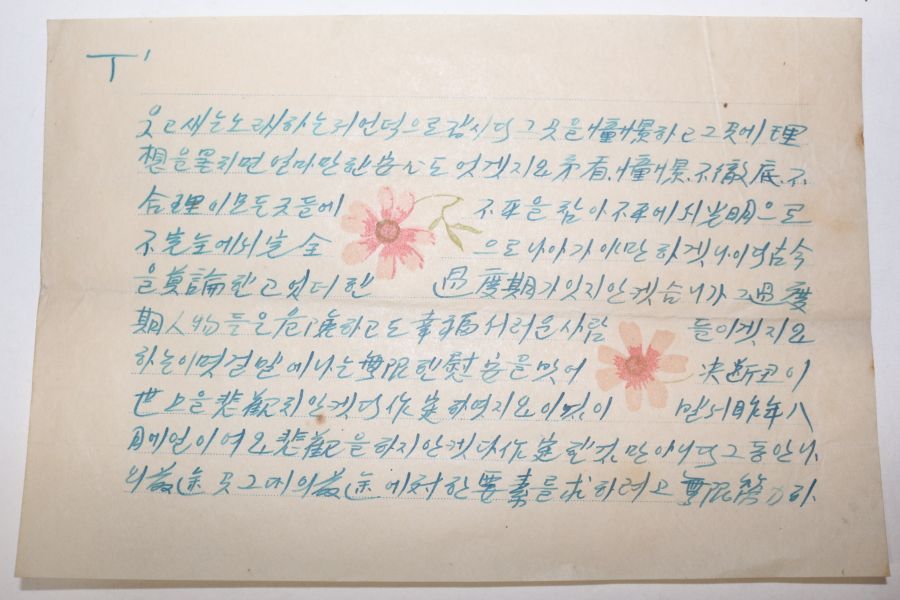 웃고 새는 노래하는 저 언덕으로 갑시다 그 곳을 憧憬하고 그 곳에 理
想을 묻치면 얼마만한 安心도 엇겟지요 矛盾, 憧憬, 不徹底, 不
合理 이 모든 것들에 不平을 참아 不平에서 光明으로
不完全에서 完全 으로 나아가 이만 하겟나이다 古今
을 莫論핸고 었더핸 過度期가 잇지안켓슴니가 그 過度
期人物들은 危險하고도 幸福서러운 사람 들이겟지요
하는 이멋걸 말에 나는 無限핸 慰安을 맛어 決斷코 이
世上을 悲觀치 안켓다 作定하엿지요 이것이 발서 昨年八
月에 일이여요 悲觀을 하지안켓다 作定핸 것만 아니다 그동안 나
의 前途 곳 그대의 前途에 対한 要素를 求하려고 無限努力하